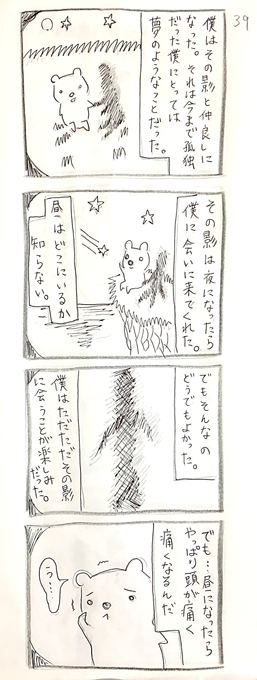 39
僕はその影と仲良しに
なった。それは今まで孤独
だった僕にとっては
夢のようなことだった。
その影は夜になったら
僕に会いに来てくれた。
昼はどこにいるか
知らない。
でもそんなの
どうでもよかった。
僕はただただその影
に会うことが楽しみ
だった。
でも…昼になったら
やっぱり頭が痛く
痛くなるんだ
う…